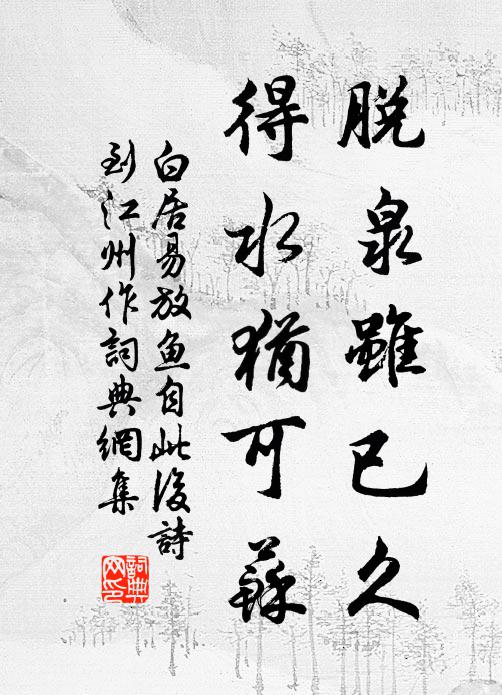 脱泉雖已久
得水猶可蘇
白居易放鱼自此後詩
到江州作詞典網集
詞典
网印